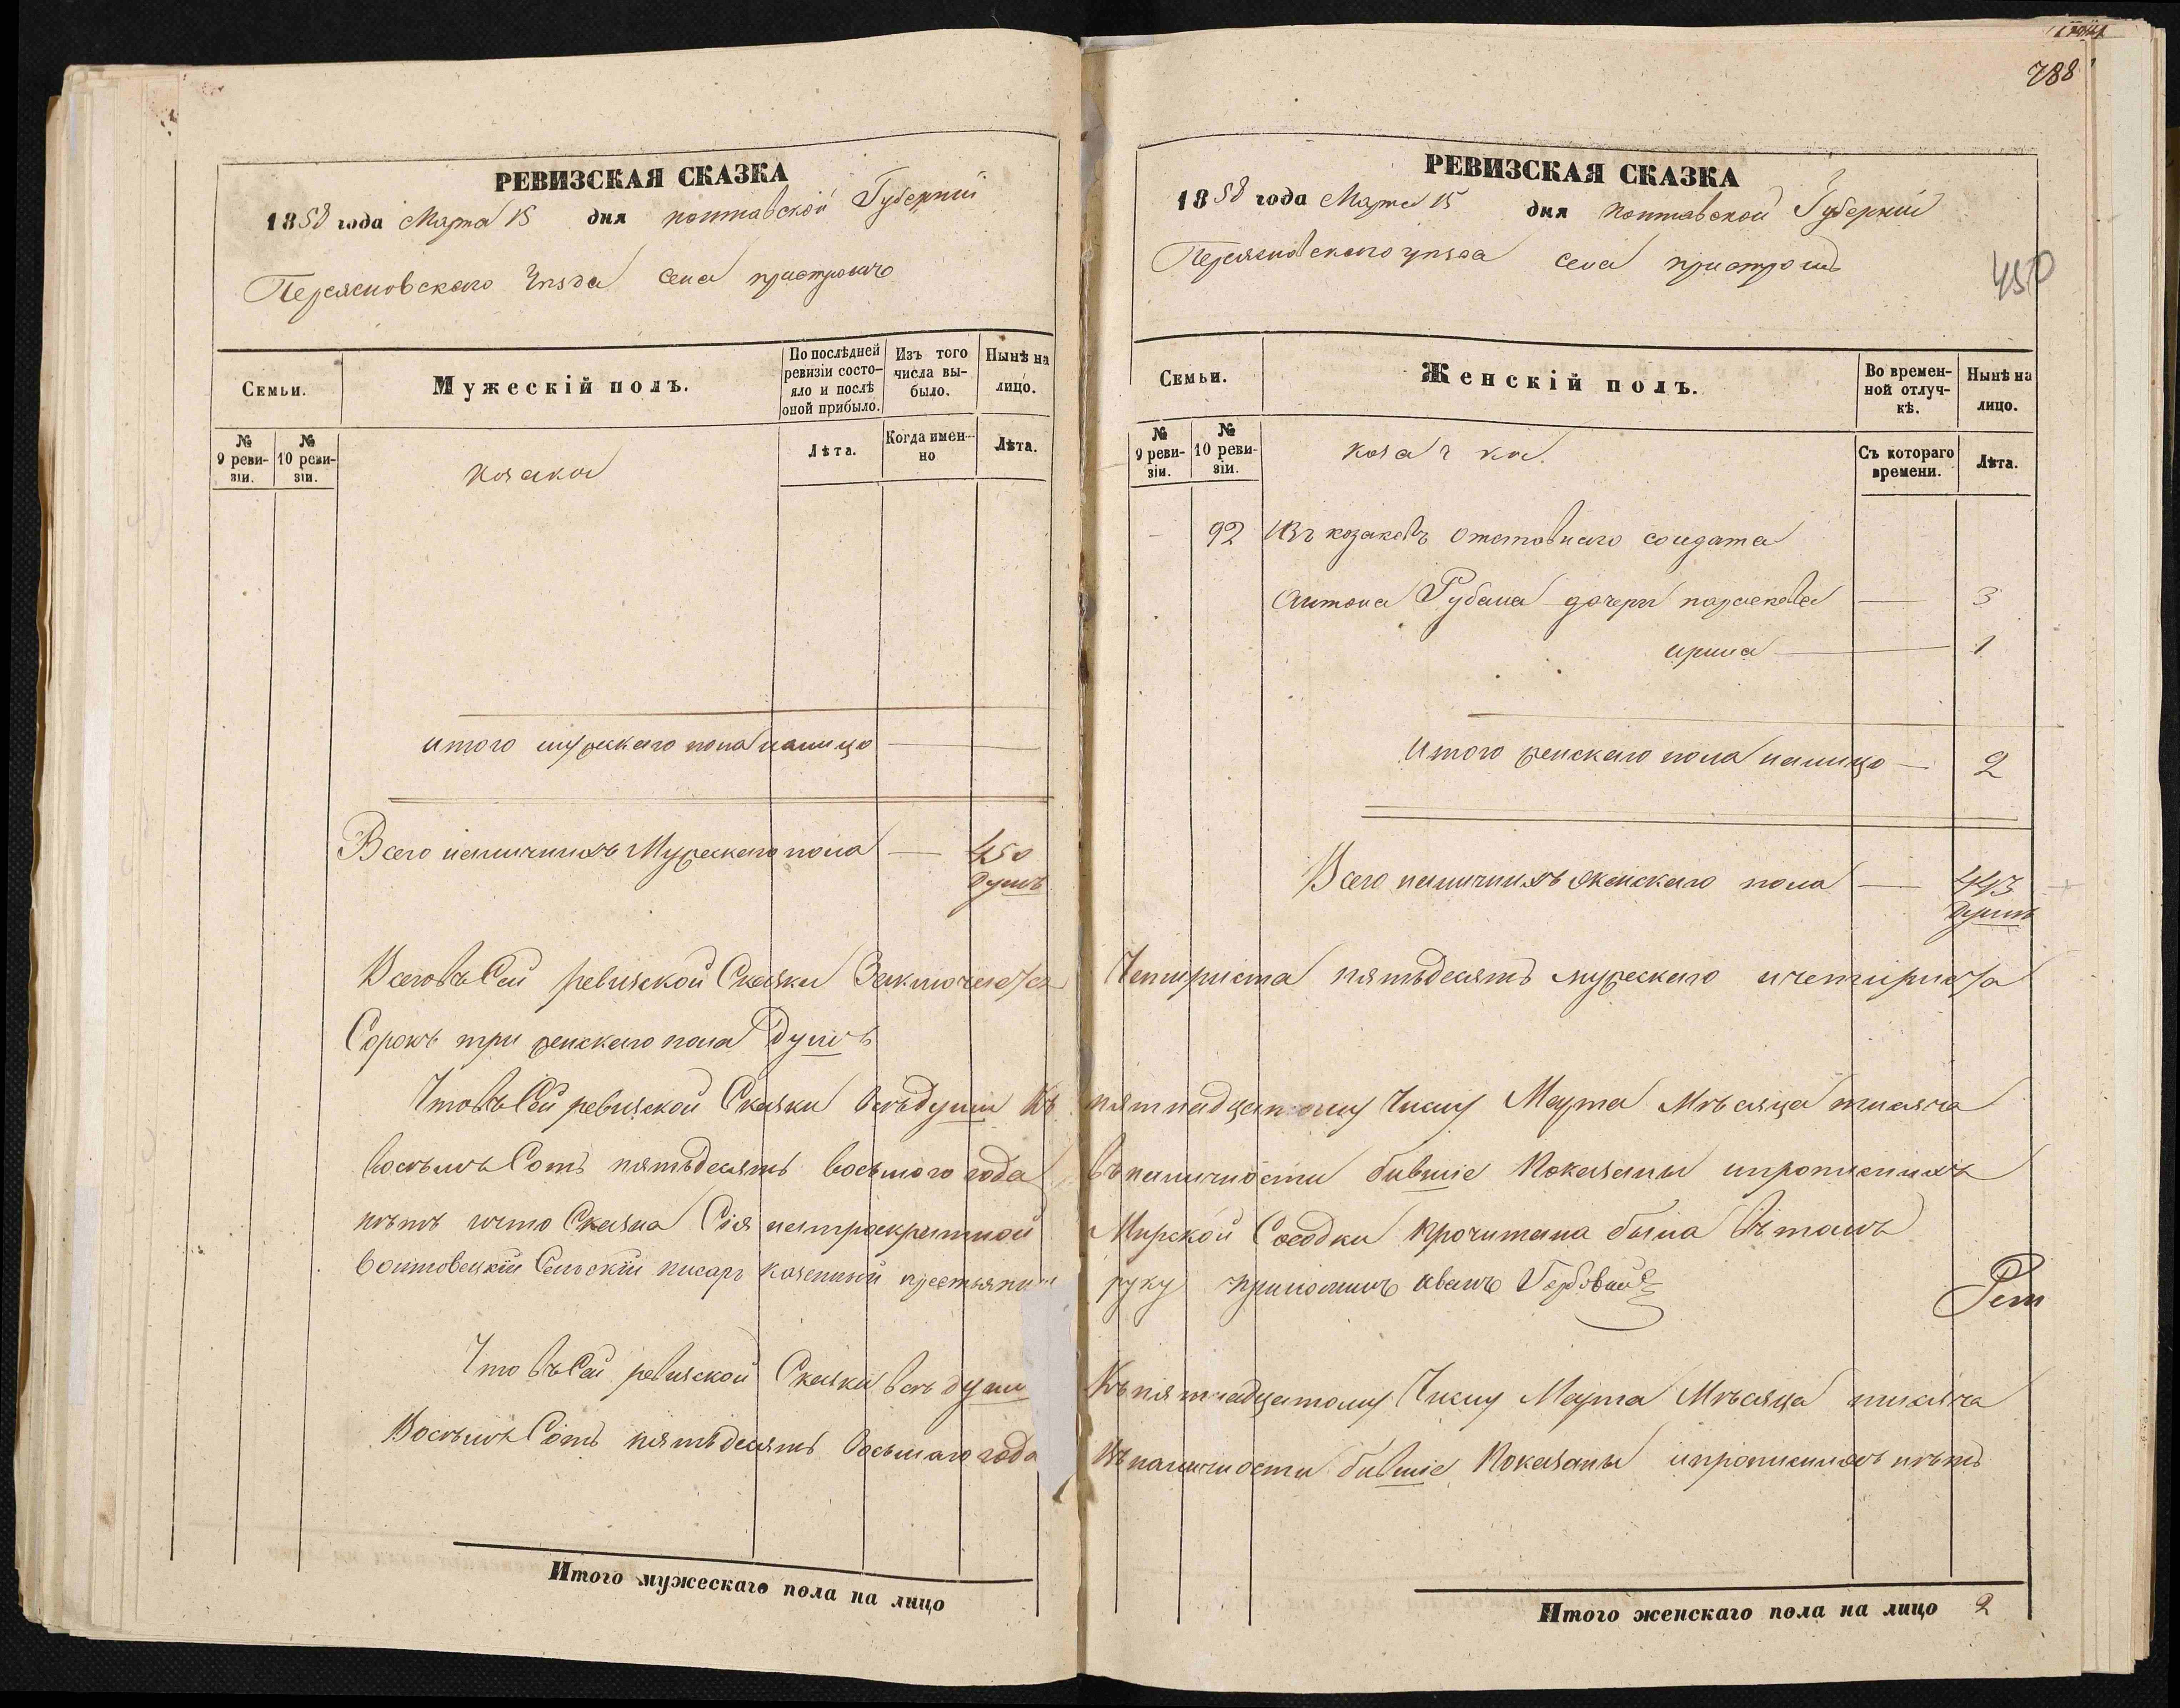 788
РЕВИЗСКАЯ СКАЗКА
1858 года Марта 15 дня полтавской Губернии
Переясловского Уезда Села пристромъ
Семьи.
Мужескій полъ.
По послѣдней ревизіи состо-
яло и послѣ оной прибыло.
Изъ того числа вы-
было.
Нынѣ на лицо.
№ 9 реви-
зіи.
№ 10 реви-
зіи.
козака
Лѣта.
Когда имен-
но
Лѣта.
итого мужескаго пола налицо —
Всего наличнихъ Мужескаго пола — 450
душъ
РЕВИЗСКАЯ СКАЗКА
1858 года Марта 15 дня полтавской Губернии
Переясловского уезда села пристромъ
450
Семьи.
Женскій полъ.
Во времен-
ной отлуч-
кѣ.
Нынѣ на лицо.
№ 9 реви-
зіи.
№ 10 реви-
зіи.
козачка
Съ котораго времени.
Лѣта.
- 92 Изъ козаковъ отставнаго солдата
Антона Рубана дочери параскева — 3
ирина — 1
Итого женскаго пола налицо — 2
Всего наличнихъ женскаго пола — 443
душъ
Всего въ Сей ревизской Сказки Заключается Четыриста пятьдесятъ мужескаго и четириста
Сорокъ три женскаго пола Душъ
Что въ Сей ревизской Сказки всѣ души Къ пятнадцатому Числу Марта Мѣсяца тисяча
восѣмь Сотъ пятьдесятъ восьмого года въ наличности бившіе Показаны и прописнихъ
нѣтъ и что Сказка Сія на Мирской Сходки прочитана была въ томъ
Сельскій писарь казенный крестьянинъ руку приложилъ иванъ
Что въ Сей ревизской Сказки всѣ души Къ пятнадцатому Числу Марта Мѣсяца тисяча
Восѣмь Сотъ пятьдесятъ восьмаго года Въ наличности бившіе Показаны и прописнихъ нѣтъ
Итого мужескаго пола на лицо
Итого женскаго пола на лицо 2